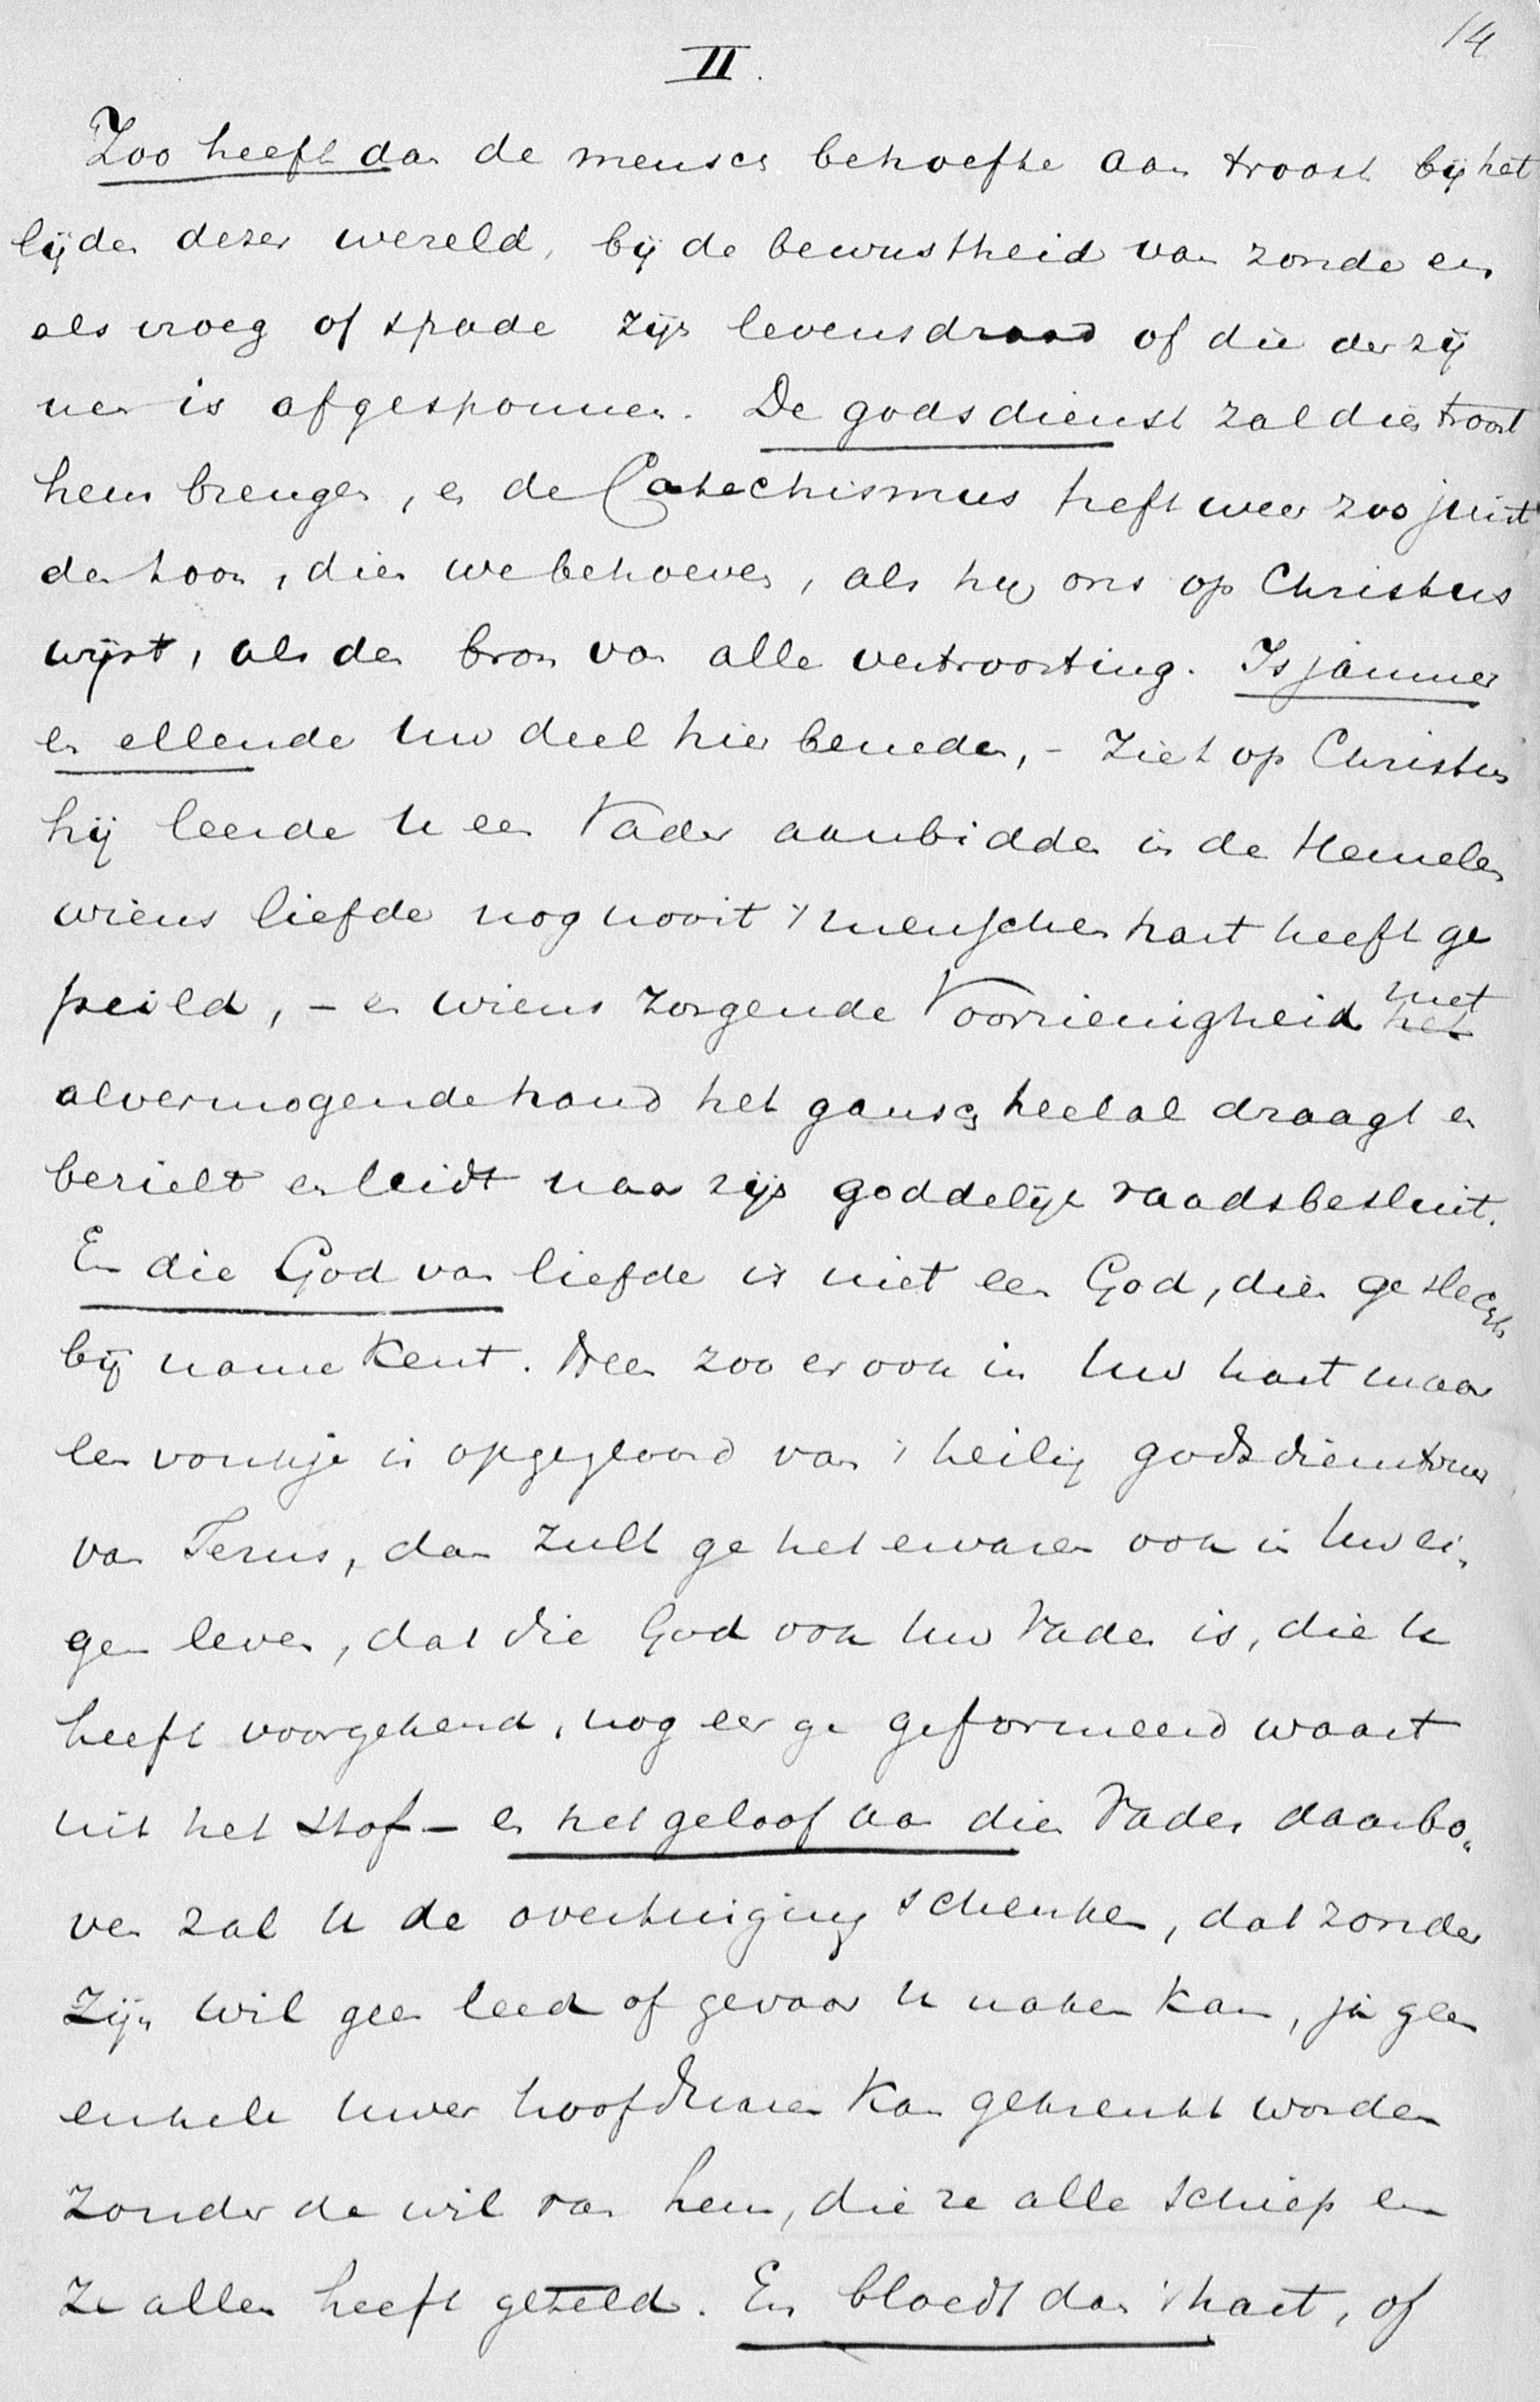 14
II.
Zoo heeft dan de mensch behoefte aan troost bij het
lijden dezer wereld, bij de bewustheid van zonde en
als vroeg of spade zijn levensdraad of die der zij
nen is afgesponnen. De godsdienst zal dien troost
hem brengen, en de Catechismus treft weer zoo juist
den toon, dien we behoeven, als hij ons op Christus
wijst, als den bron van alle vertroosting. Is jammer
en ellende Uw deel hier beneden, - Ziet op Christus
hij leerde U een Vader aanbidden in de Hemelen
wiens liefde nog nooit 't menschenhart heeft ge
peild, - en wiens zorgende Voorzienigheid met het
alvermogende hand het gansch heelal draagt en
bezielt en leidt naar zijn goddelijk raadsbesluit.
En die God van liefde is niet een God, dien ge slechts
bij name kent. Neen zoo er ook in Uw hart maar
een vonkje is opgegloord van 't heilig godsdienstvuur
van Jezus, dan zult ge het ervaren ook in Uw ei-
gen leven, dat die God ook Uw Vader is, die U
heeft voorgekend, nog eer ge geformeerd waart
uit het stof - en het geloof aan dien Vader daarbo„
ven zal U de overtuiging schenken, dat zonder
Zijn wil geen leed of gevaar U naken kan, ja geen
enkele Uwer hoofdharen kan gekrenkt worden
zonder de wil van hem, die ze alle schiep en
ze allen heeft geteld. En bloedt dan 't hart, of